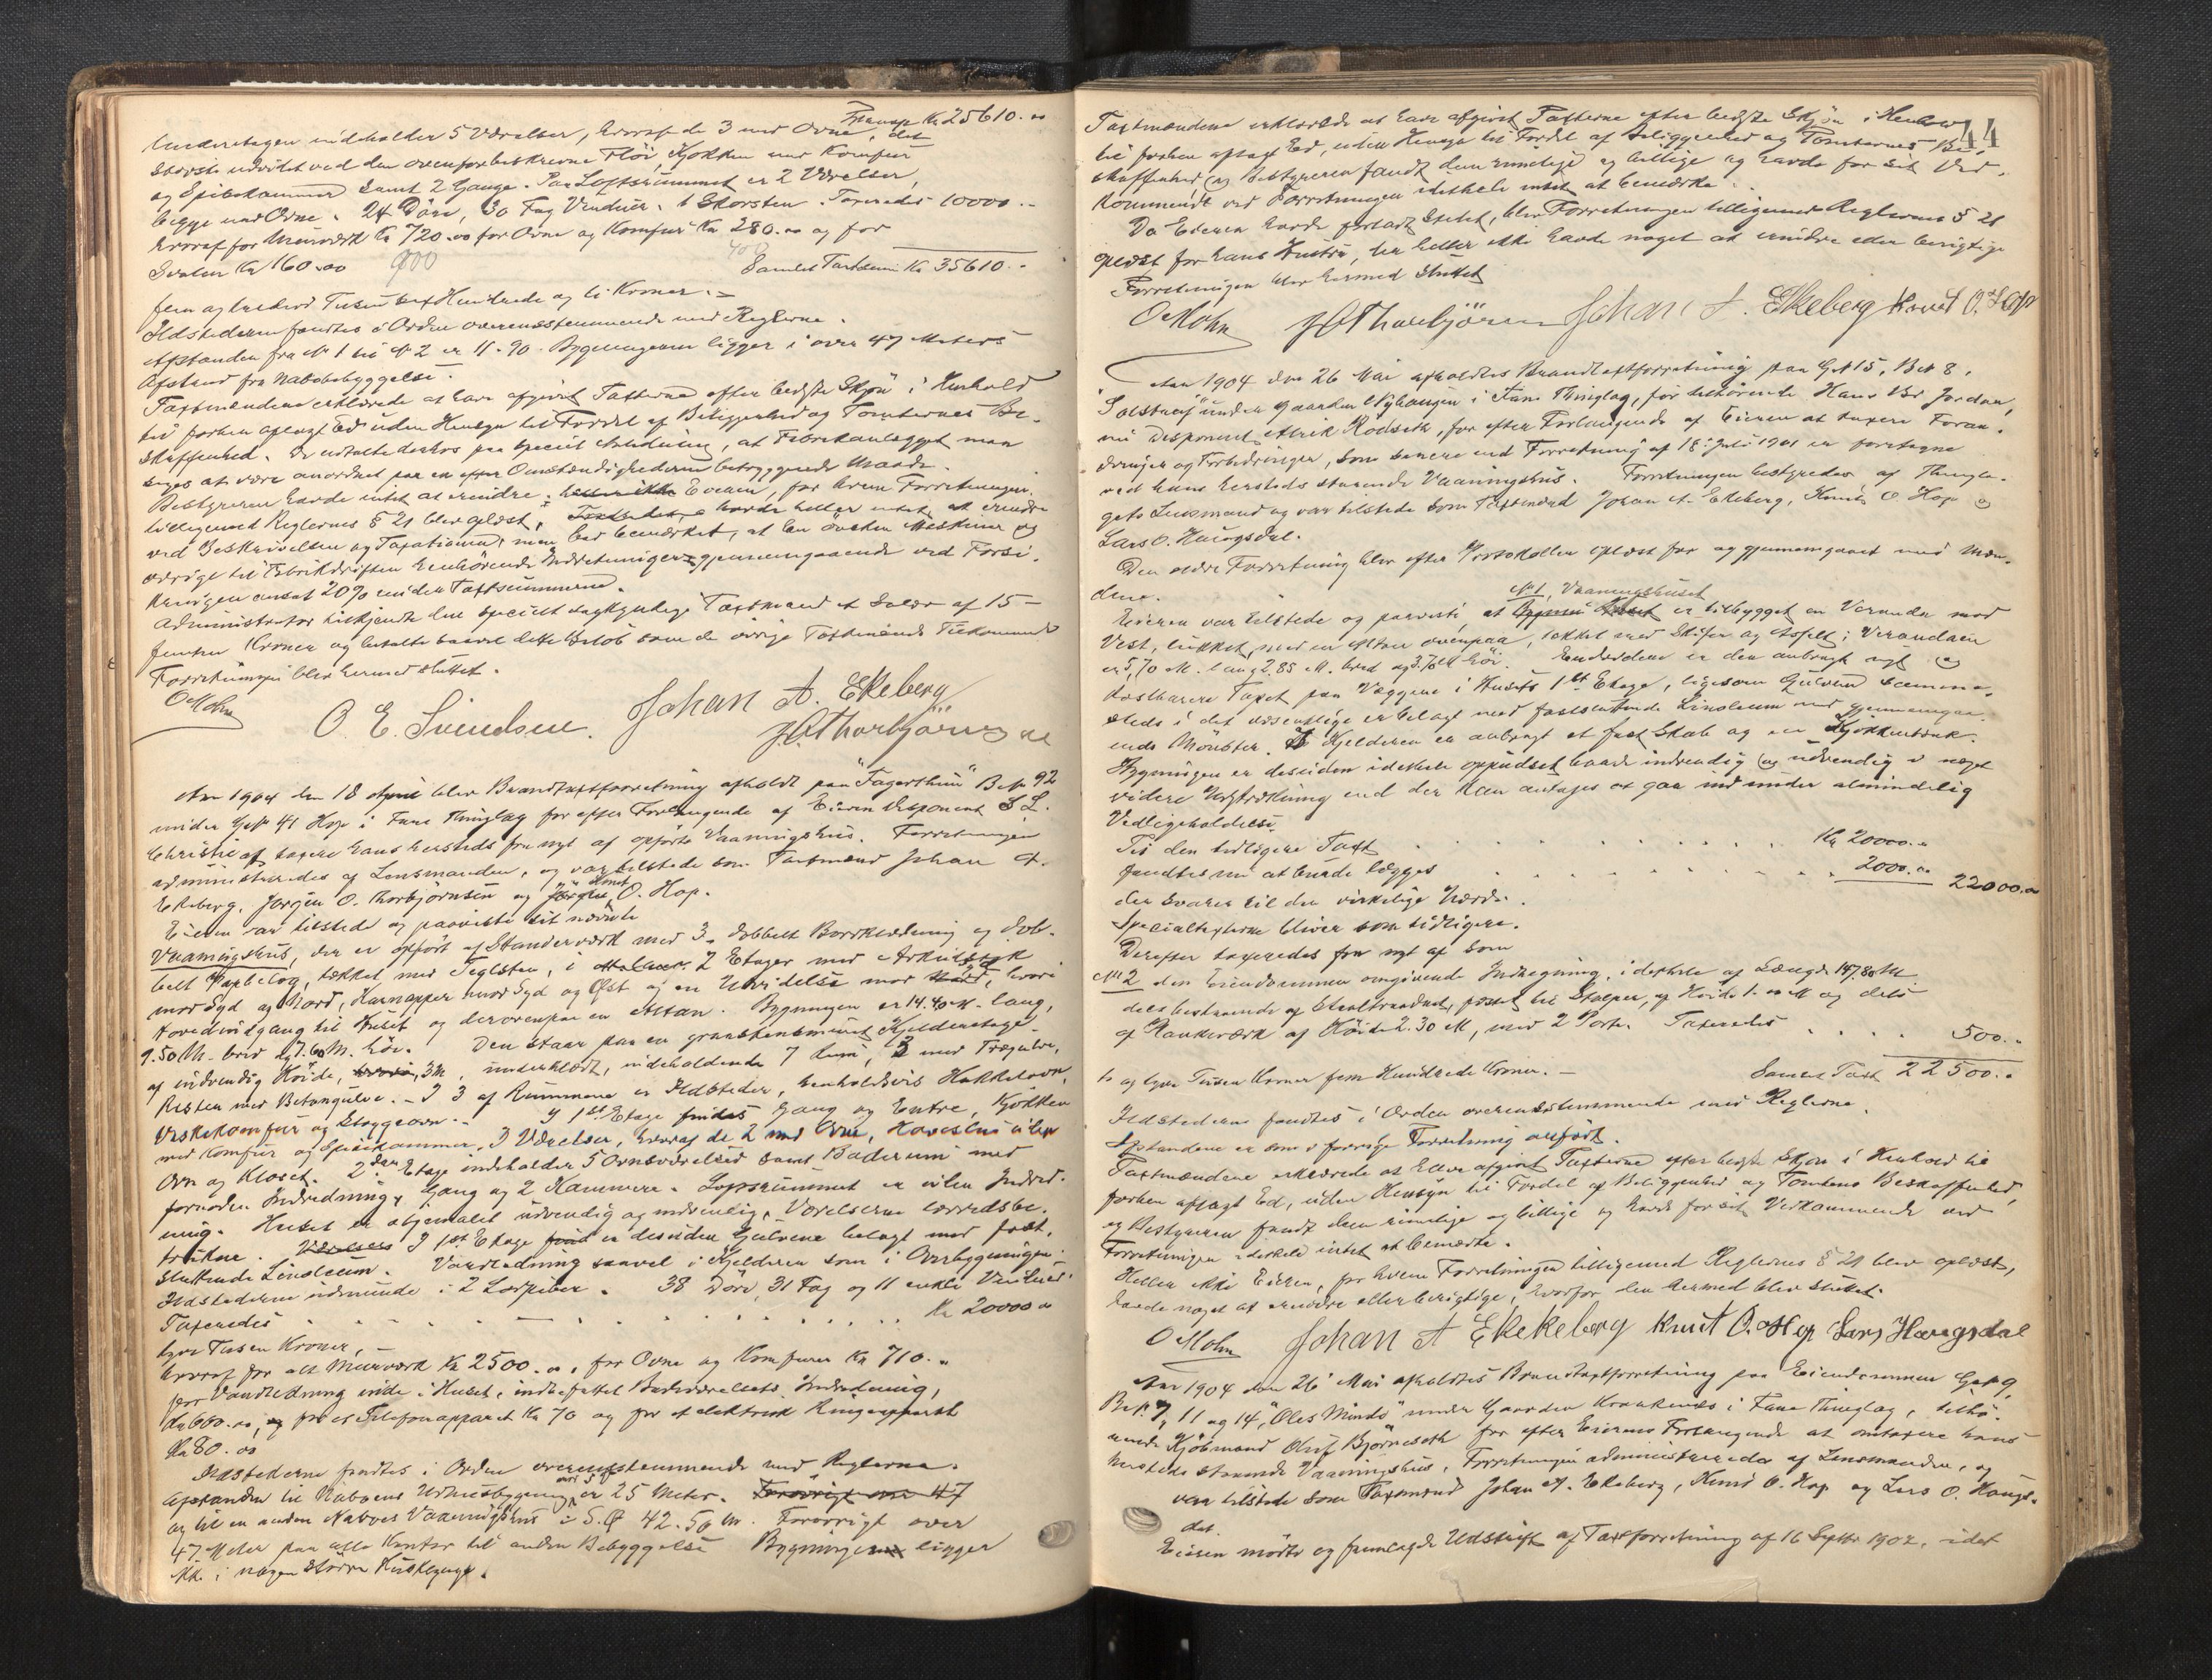 Transp. Kr 25610.00
Underetagen indeholder 5 Værelser, hvoraf de 3 med Ovne, det
største udvidet ved den ovenfor beskrevne Fløi, Kjøkken med Komfur
og Spisekammer samt 2 Gange. Paa Loftsrummet er 2 Værelser,
begge med Ovne. 24 Døre, 30 Fag Vinduer. 1 Skorsten. Taxeredes 10000.-
hvoraf for Murværk Kr 720.00 for Ovne og Komfur Kr 280.00 og for
Svaler Kr 160.00
Samlet Taxtsum Kr 35610.-
fem og tredive Tusen sex Hundrede og ti Kroner.-
Ildstederne fandtes i Orden overensstemmende med Reglerne.
Afstanden fra No 1 til No 2 er 11.90. Bygningerne ligger i over 47 Meters
Afstand fra Nabobebyggelse.
Taxtmændene erklærede at have afgivet Taxterne efter bedste Skjøn i Henhold
til forhen aflagt Ed uden Hensyn til Fordel af Beliggenhed og Tomternes Be-
skaffenhed. De udtalte derhos paa speciel Anledning, at Fabrikanlægget maa
siges at være anordnet paa en efter Omstændighederne betryggende Maade.
Bestyreren havde intet at erindre. heller ikke Eieren, for hvem Forretningen
tilligemed Reglernes § 21 blev oplæst, havde heller intet at erindre
ved Beskrivelsen og Taxationen, men bad bemærket, at han ønsker Maskiner og
øvrige til Fabrikdriften henhørende Indretninger gjennemgaaende ved Forsi-
kringen ansat 20% under Taxtsummerne.
Administrator tilkjendte den specielt sagkyndige Taxtmand et Salær af 15-
femten Kroner og betalte saavel dette Beløb som de øvrige Taxtmænds Tilkommende
Forretningen blev hermed sluttet.
O Mohn
O. E. Svendsen. Johan A. Ekeberg
J O Thorbjörnsen
Aar 1904 den 18 April blev Brandtaxtforretning afholdt paa "Fagerthun" B. No 92
under G. No 41 Hop i Fane Thinglag for efter Forlangende af Eieren Disponent S. L.
Christie at taxere hans hersteds fra nyt af opførte Vaaningshus. Forretningen
administreredes af Lensmanden, og var tilstede som Taxtmænd Johan A.
Ekeberg, Jørgen O. Thorbjørnsen og Jørgen Knut O. Hop.
Eieren var tilstede og paaviste sit nævnte
Vaaningshus, der er opført af Standerværk med 3 dobbelt Bordklædning og dob-
belt Papbelæg, tækket med Teglsten, i 2 Etager med Arkudstyk
mod Syd og Nord, Karnapper mod Syd og Øst og en Udvidelse mod Nord, hvori
Hovedindgang til Huset og derovenpaa en Altan. Bygningen er 14.40 M. lang,
9.50 M. bred og 7.60 M. høi. Den staar paa en graastensmuret Kjelderetage
af indvendig Høide, 3 M, underklædt, indeholdende 7 Rum, 3 med Trægulve,
Resten med Betongulve. - I 3 af Rummene er Ildsteder, henholdsvis Kakkelovn,
Vaskekomfur og Bryggeovn. - I 1st Etage findes Gang og Entre, Kjøkken
med Komfur og Spisekammer, 3 Værelser, hvoraf de 2 med Ovne, Haveslui uden
Ovn og Kloset. 2den Etage indeholder 5 Ovnsværelser samt Baderum med
fornøden Indredning, Gang og 2 Kammere. Loftsrummet er uden Indred-
ning. Huset er oljemalet udvendig og indvendig. Værelserne lærredsbe-
trukne. Værelsers I 1st Etage er desuden Gulvene belagt med fast-
sluttende Linoleum. Vandledning saavel i Kjelderen som i Overbygningen.
Ildstederne udmunde i 2 Løspiber. 38 Døre, 31 Fag og 11 enkle Vinduer.
Taxeredes . . . . . . . . . . Kr 20000.00
tyve Tusen Kroner, -
hvoraf for alt Murværk Kr 2500.00, for Ovne og Komfurer Kr 710.00
for Vandledning inde i Huset, indbefattet Badeværelsets Indredning,
Kr 600.00, og for et Telefonapparat Kr 70 og for et elektrisk Ringeapparat
Kr 80.00
Ildstederne fandtes i Orden overensstemmende med Reglerne.
Afstanden til Naboens Udhusbygning er 25 Meter. Forøvrigt over 47
og til en anden Nabos Vaaningshus i S.Ø 42.50 M. Forøvrigt over
47 Meter paa alle Kanter til anden Bebyggelse. Bygningen ligger
ikke i nogen større Husklynge.
44
Taxtmændene erklærede at have afgivet Taxterne efter bedste Skjøn i Henhold
til forhen aflagt Ed, uden Hensyn til Fordel af Beliggenhed og Tomternes Be-
skaffenhed og Bestyreren fandt dem rimelige og billige og havde for sit Ved-
kommende ved Forretningen idethele intet at bemærke.
Da Eieren havde forladt Stedet, blev Forretningen tilligemed Reglernes § 21
oplæst for hans Hustru, der heller ikke havde noget at erindre eller berigtige
Forretningen blev hermed sluttet
O Mohn J O Thorbjörnsen Johan A. Ekeberg Knut O. Hop
Aar 1904 den 26 Mai afholdtes Brandtaxtforretning paa G. No 15, B. No 8,
"Solstraf" under Gaarden Nyhaugen i Fane Thinglag, før tilhørende Hans Br. Jordan,
nu Disponent Alrik Rönseth, for efter Forlangende af Eieren at taxere Foran-
dringer og Forbedringer, som senere end Forretning af 18 Juli 1901 er foretagne
ved hans hersteds staaende Vaaningshus. Forretningen bestyredes af Thingla-
gets Lensmand og var tilstede som Taxtmænd Johan A. Ekeberg, Knut O. Hop og
Lars O. Haugsdal.
Den ældre Forretning blev efter Protokollen oplæst for og gjennemgaaet med Mæn-
dene.
No 1, Vaaningshuset
Eieren var tilstede og paaviste, at er tilbygget en Veranda mod
Vest, lukket, med en Altan ovenpaa, tækket med Skifer og Asfelt; Verandaen
er 5,70 M. lang 2.85 M. bred og 3.70 M høi. Endvidere er der anbragt nyt og
kostbarere Tapet paa Væggene i Husets 1st Etage, ligesom Gulvene samme-
steds i det væsentlige er belagt med fastsluttende Linoleum med gjennemgaa-
ende Mønster. I Kjelderen er anbragt et fast Skab og en Kjøkkenbænk.
Bygningen er desuden idethele oppudset baade indvendig og udvendig i noget
videre Udstrækning end der kan antages at gaa ind under almindelig
Vedligeholdelse.
Til den tidligere Taxt . . . . . . . . Kr 20000.00
fandtes nu at burde lægges . . . . . . 2000.00 22000.00
der svarer til den virkelige Værdi.
Specialtaxterne bliver som tidligere.
Derefter taxeredes fra nyt af som
No 2 den Eiendommen omgivende Indhegning, idethele af Længde 147,80 M
dels bestaaende af Staaltraadnet, fæstet til Stolper, af Høide 1.00 M og dels
af Plankeværk af Høide 2.30 M, med 2 Porte. Taxeredes . . . . 500.00
to og tyve Tusen Kroner fem Hundrede Kroner. - Samlet Taxt 22500.00
Ildstederne fandtes i Orden overensstemmende med Reglerne.
Afstandene er som i forrige Forretning anført.
Taxtmændene erklærede at have afgivet Taxterne efter bedste Skjøn i Henhold til
forhen aflagt Ed, uden Hensyn til Fordel af Beliggenhed og Tomtens Beskaffenhed,
og Bestyreren fandt dem rimelige og billige og havde for sit Vedkommende ved
Forretningen idethele intet at bemærke.
Heller ikke Eieren, for hvem Forretningen tilligemed Reglernes § 21 blev oplæst,
havde noget at erindre eller berigtige, hvorfor den hermed blev sluttet.
O Mohn Johan A Ekekeberg Knut O. Hop Lars Haugsdal
Aar 1904 den 26 Mai afholdtes Brandtaxtforretning paa Eiendommen G. No 9,
B. No 7, 11 og 14, "Oles Minde" under Gaarden Kraakenes i Fane Thinglag, tilhø-
rende Kjøbmand Oluf Bjørneseth for efter Eierens Forlangende at omtaxere hans
hersteds staaende Vaaningshus. Forretningen administreredes af Lensmanden, og
var tilstede som Taxtmænd Johan A. Ekeberg, Knud O. Hop og Lars O. Haugs-
dal.
Eieren mødte og fremlagde Udskrift af Taxtforretning af 16 Septbr 1902, idet